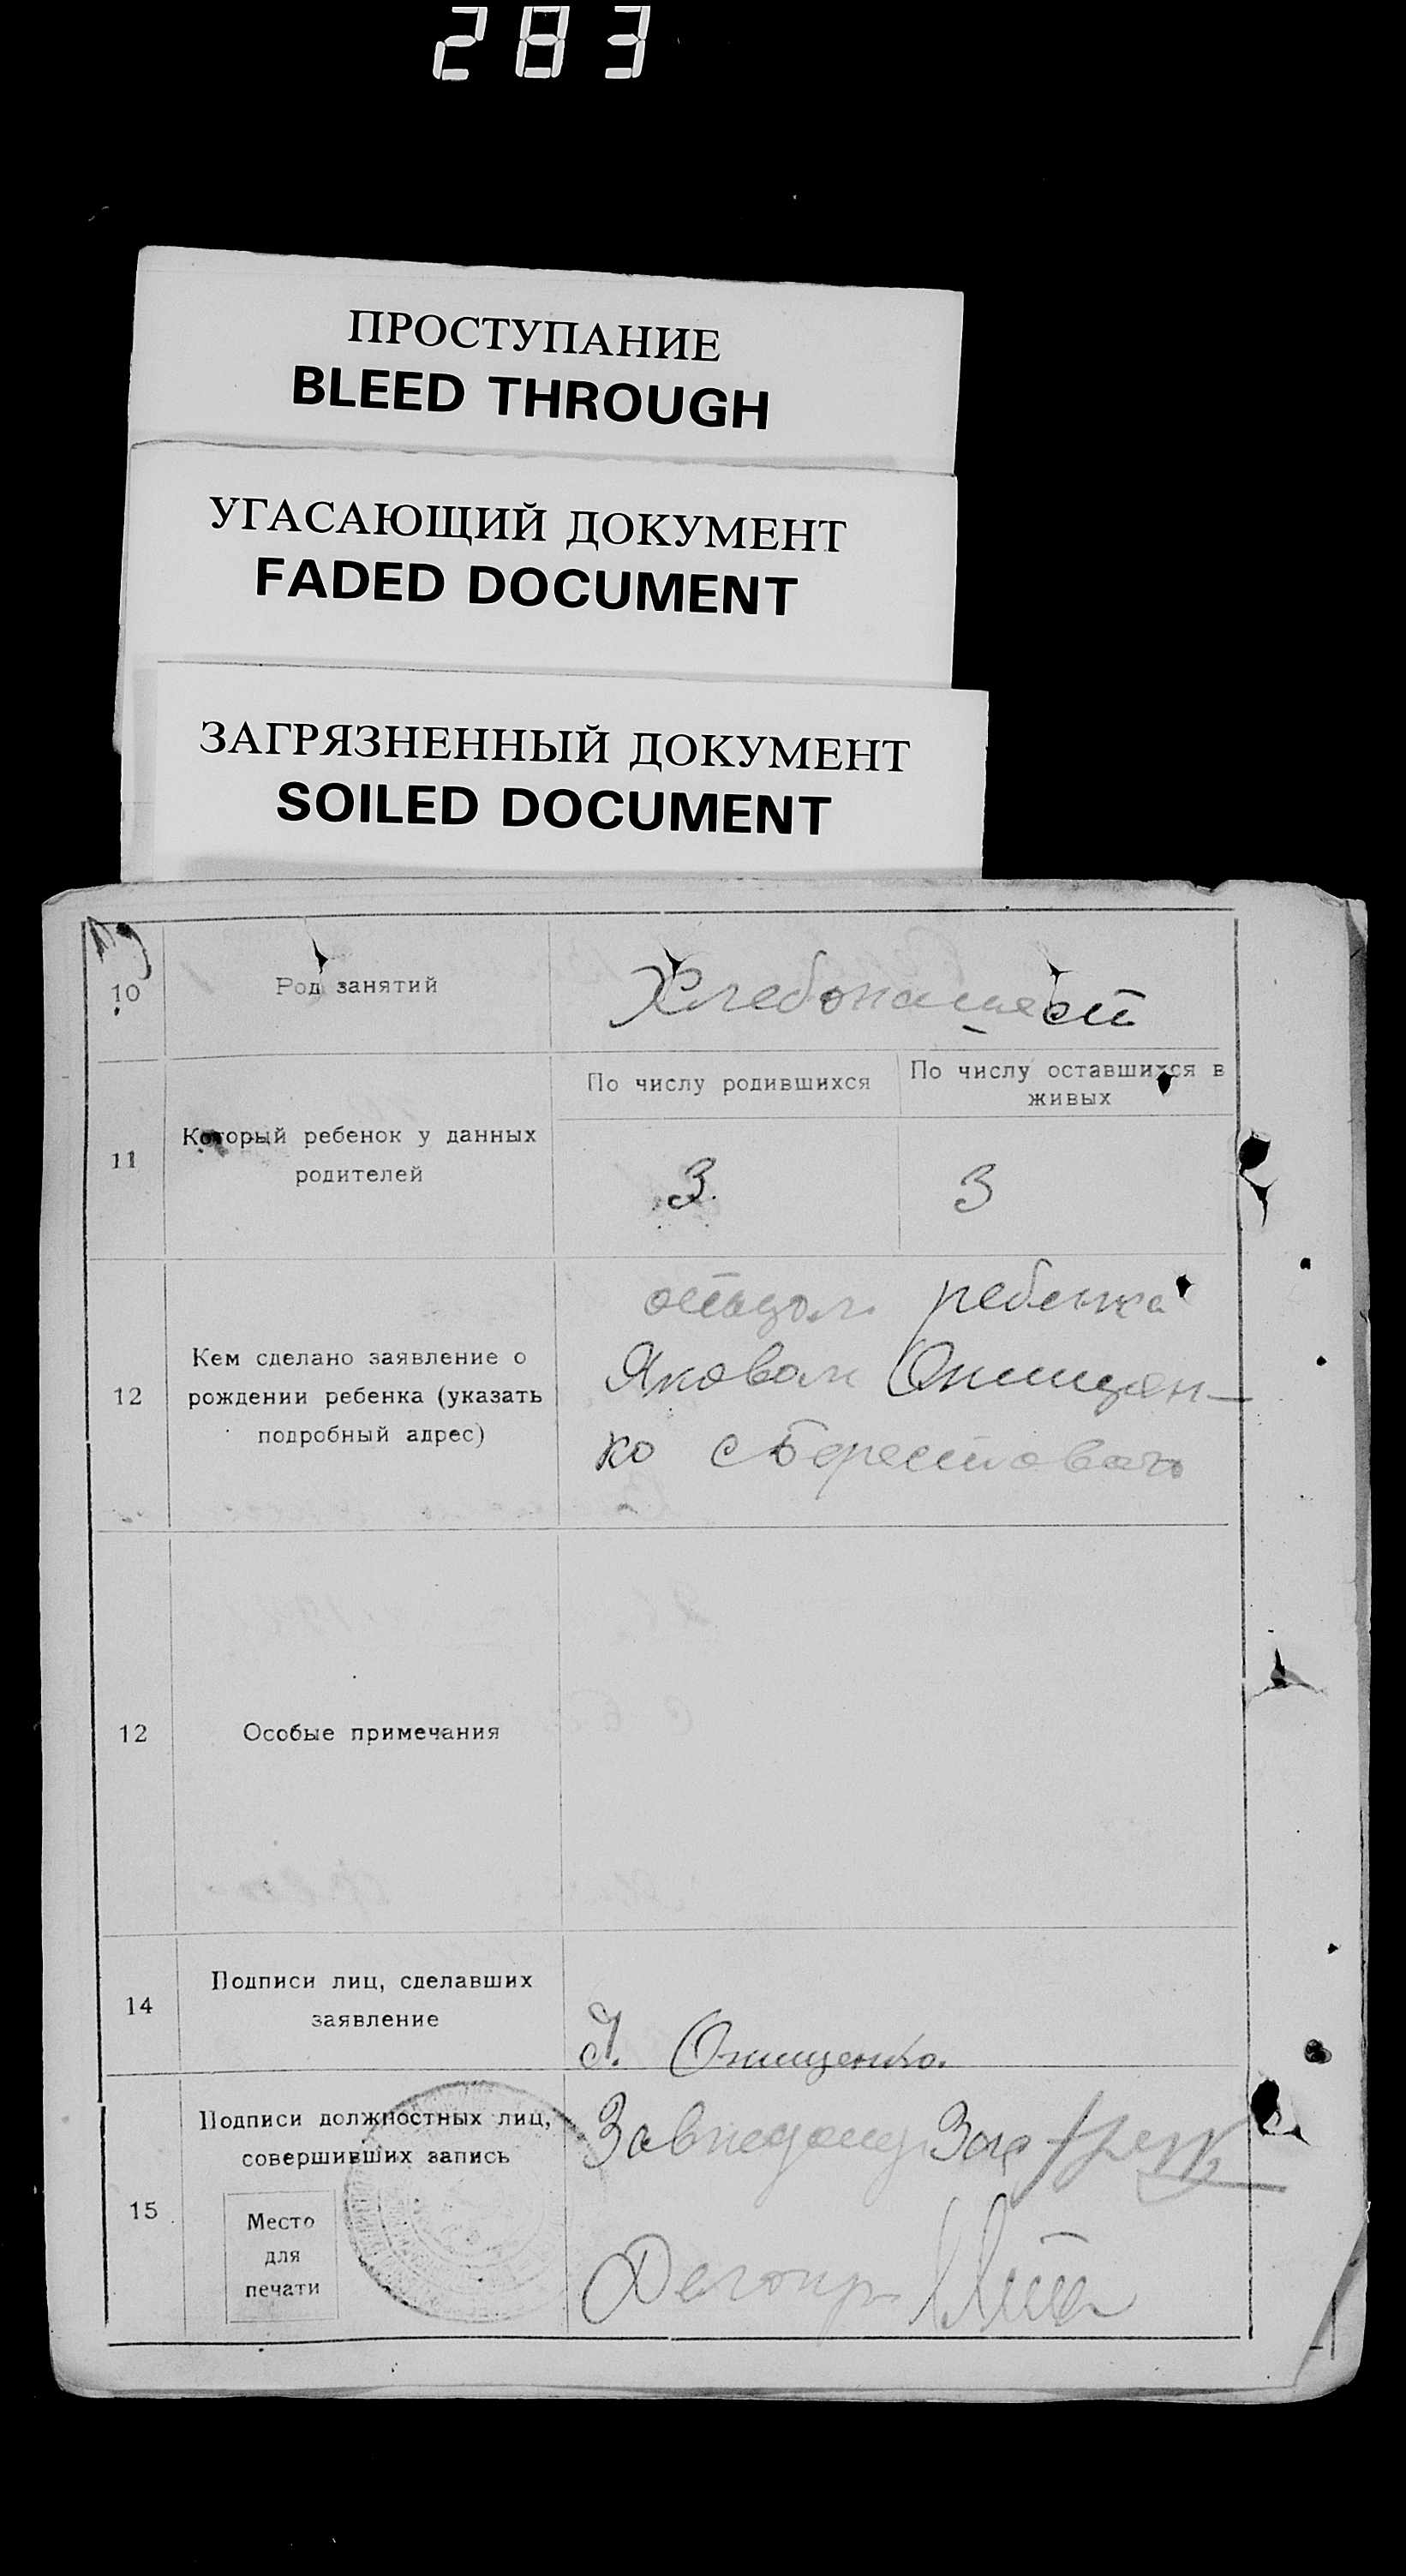 283
ПРОСТУПАНИЕ
BLEED THROUGH
УГАСАЮЩИЙ ДОКУМЕНТ
FADED DOCUMENT
ЗАГРЯЗНЕННЫЙ ДОКУМЕНТ
SOILED DOCUMENT
10
Род занятий
Хлебопашест
11
Который ребенок у данных
родителей
По числу родившихся
3.
По числу оставшихся в
живых
3
12
Кем сделано заявление о
рождении ребенка (указать
подробный адрес)
отцом ребенка
Яковом Онищен-
ко с Берестового
12
Особые примечания
14
Подписи лиц, сделавших
заявление
Я. Онищенко.
15
Подписи должностных лиц,
совершивших запись
Место
для
печати
Делопр